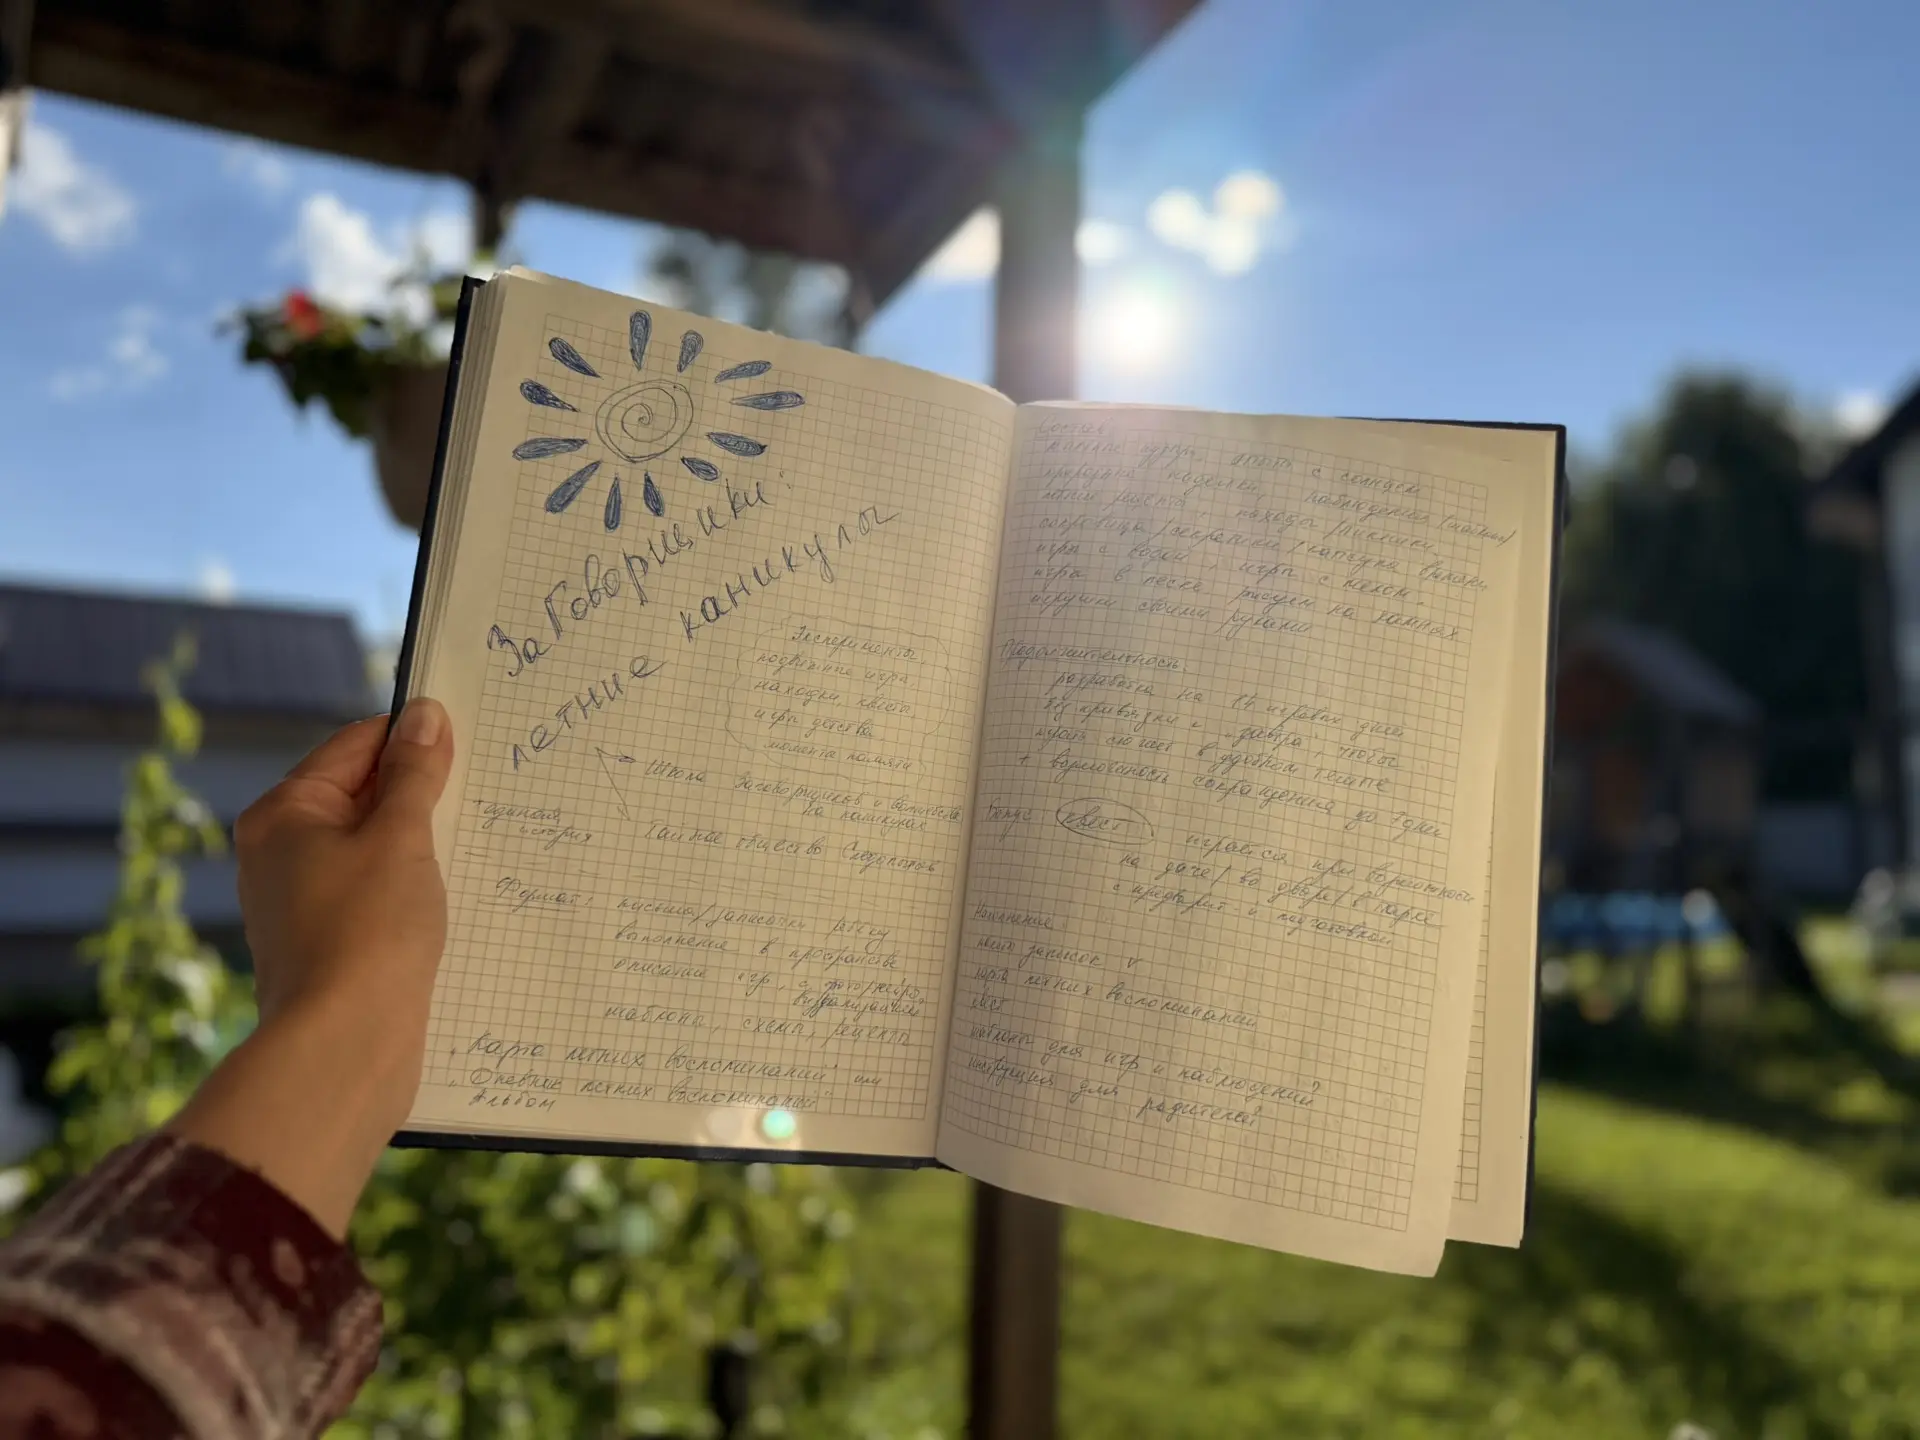 ЗаГоворщики:
летние каникулы
Эксперименты,
подвижные игры,
находки, квесты,
игры детства
моменты памяти
Школа Заговорщиков и волшебства
на каникулах
единая
история
Тайное общество Следопытов
Формат: письма/записочки ребёнку
выполнение в пространстве
описание игр, с фото
визуализацией
шаблоны, схемы, рецепты
"Карта летних воспоминаний" или
"Дневник летних воспоминаний"
Альбом
с солнцем
природные поделки, наблюдения
летние рецепты, находки / пикники
сокровища / секретики / капсула времени
игры с водой, игры с мелом.
игры в песке, рисуем на камнях
игрушки своими руками
Продолжительность:
разработка на 14 игровых дней
без привязки к "завтра", чтобы
в удобном темпе
+ возможность сокращения до 7 дней
Бонус квест играется при возможности
на даче / во дворе / в парке
с предварит-й подготовкой
Наполнение:
записок v
карта летних воспоминаний
квест
шаблоны для игр и наблюдений?
инструкция для родителей?